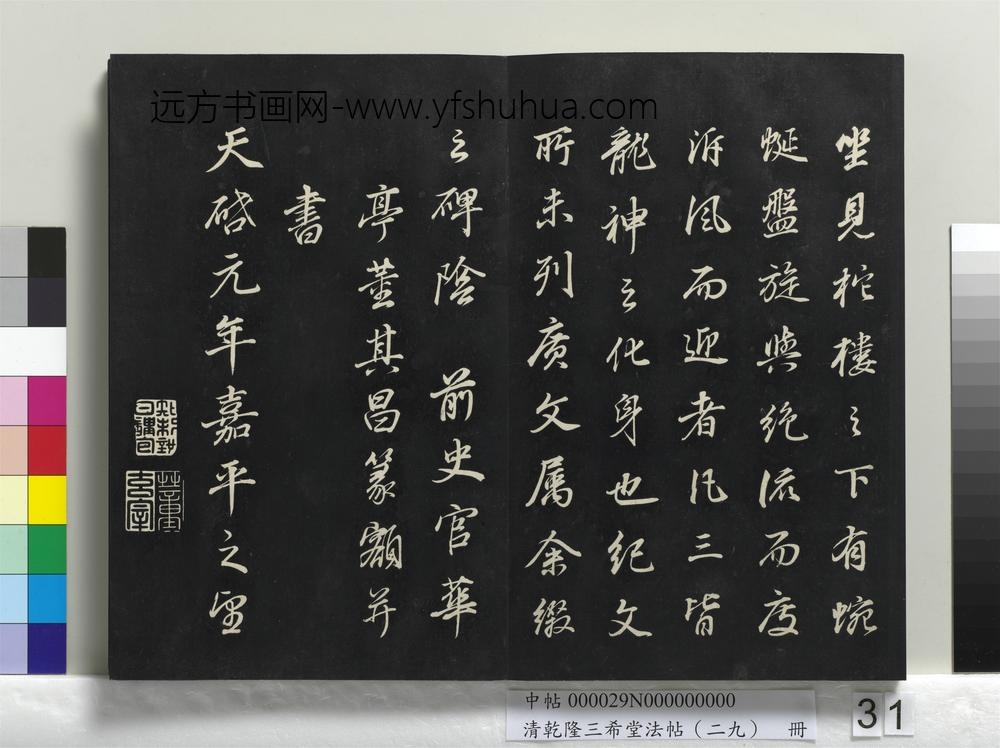 远方书画网-www.yfshuhua.com
坐見柁樓之下有蜿
蜒盤旋與絶流而度
泝風而迎者凡三皆
龍神之化身也紀文
所未列廣文屬余綴
之碑陰 前史官華
亭董其昌篆額并
書
天啓元年嘉平之望
中帖 000029N000000000
清乾隆三希堂法帖(二九) 冊
31